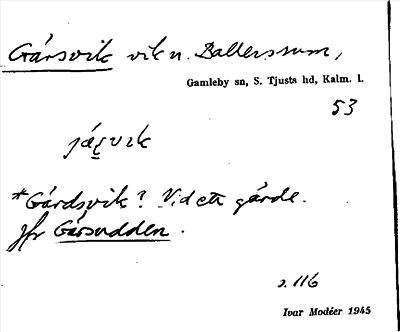 Gårsvik vik n. Ballerssum,
Gamleby sn, S. Tjusts hd, Kalm. l.
53
jáṣvik
*Gårdsvik? Vid ett gärde.
Jfr Gårsudden.
s. 116
Ivar Modéer 1945